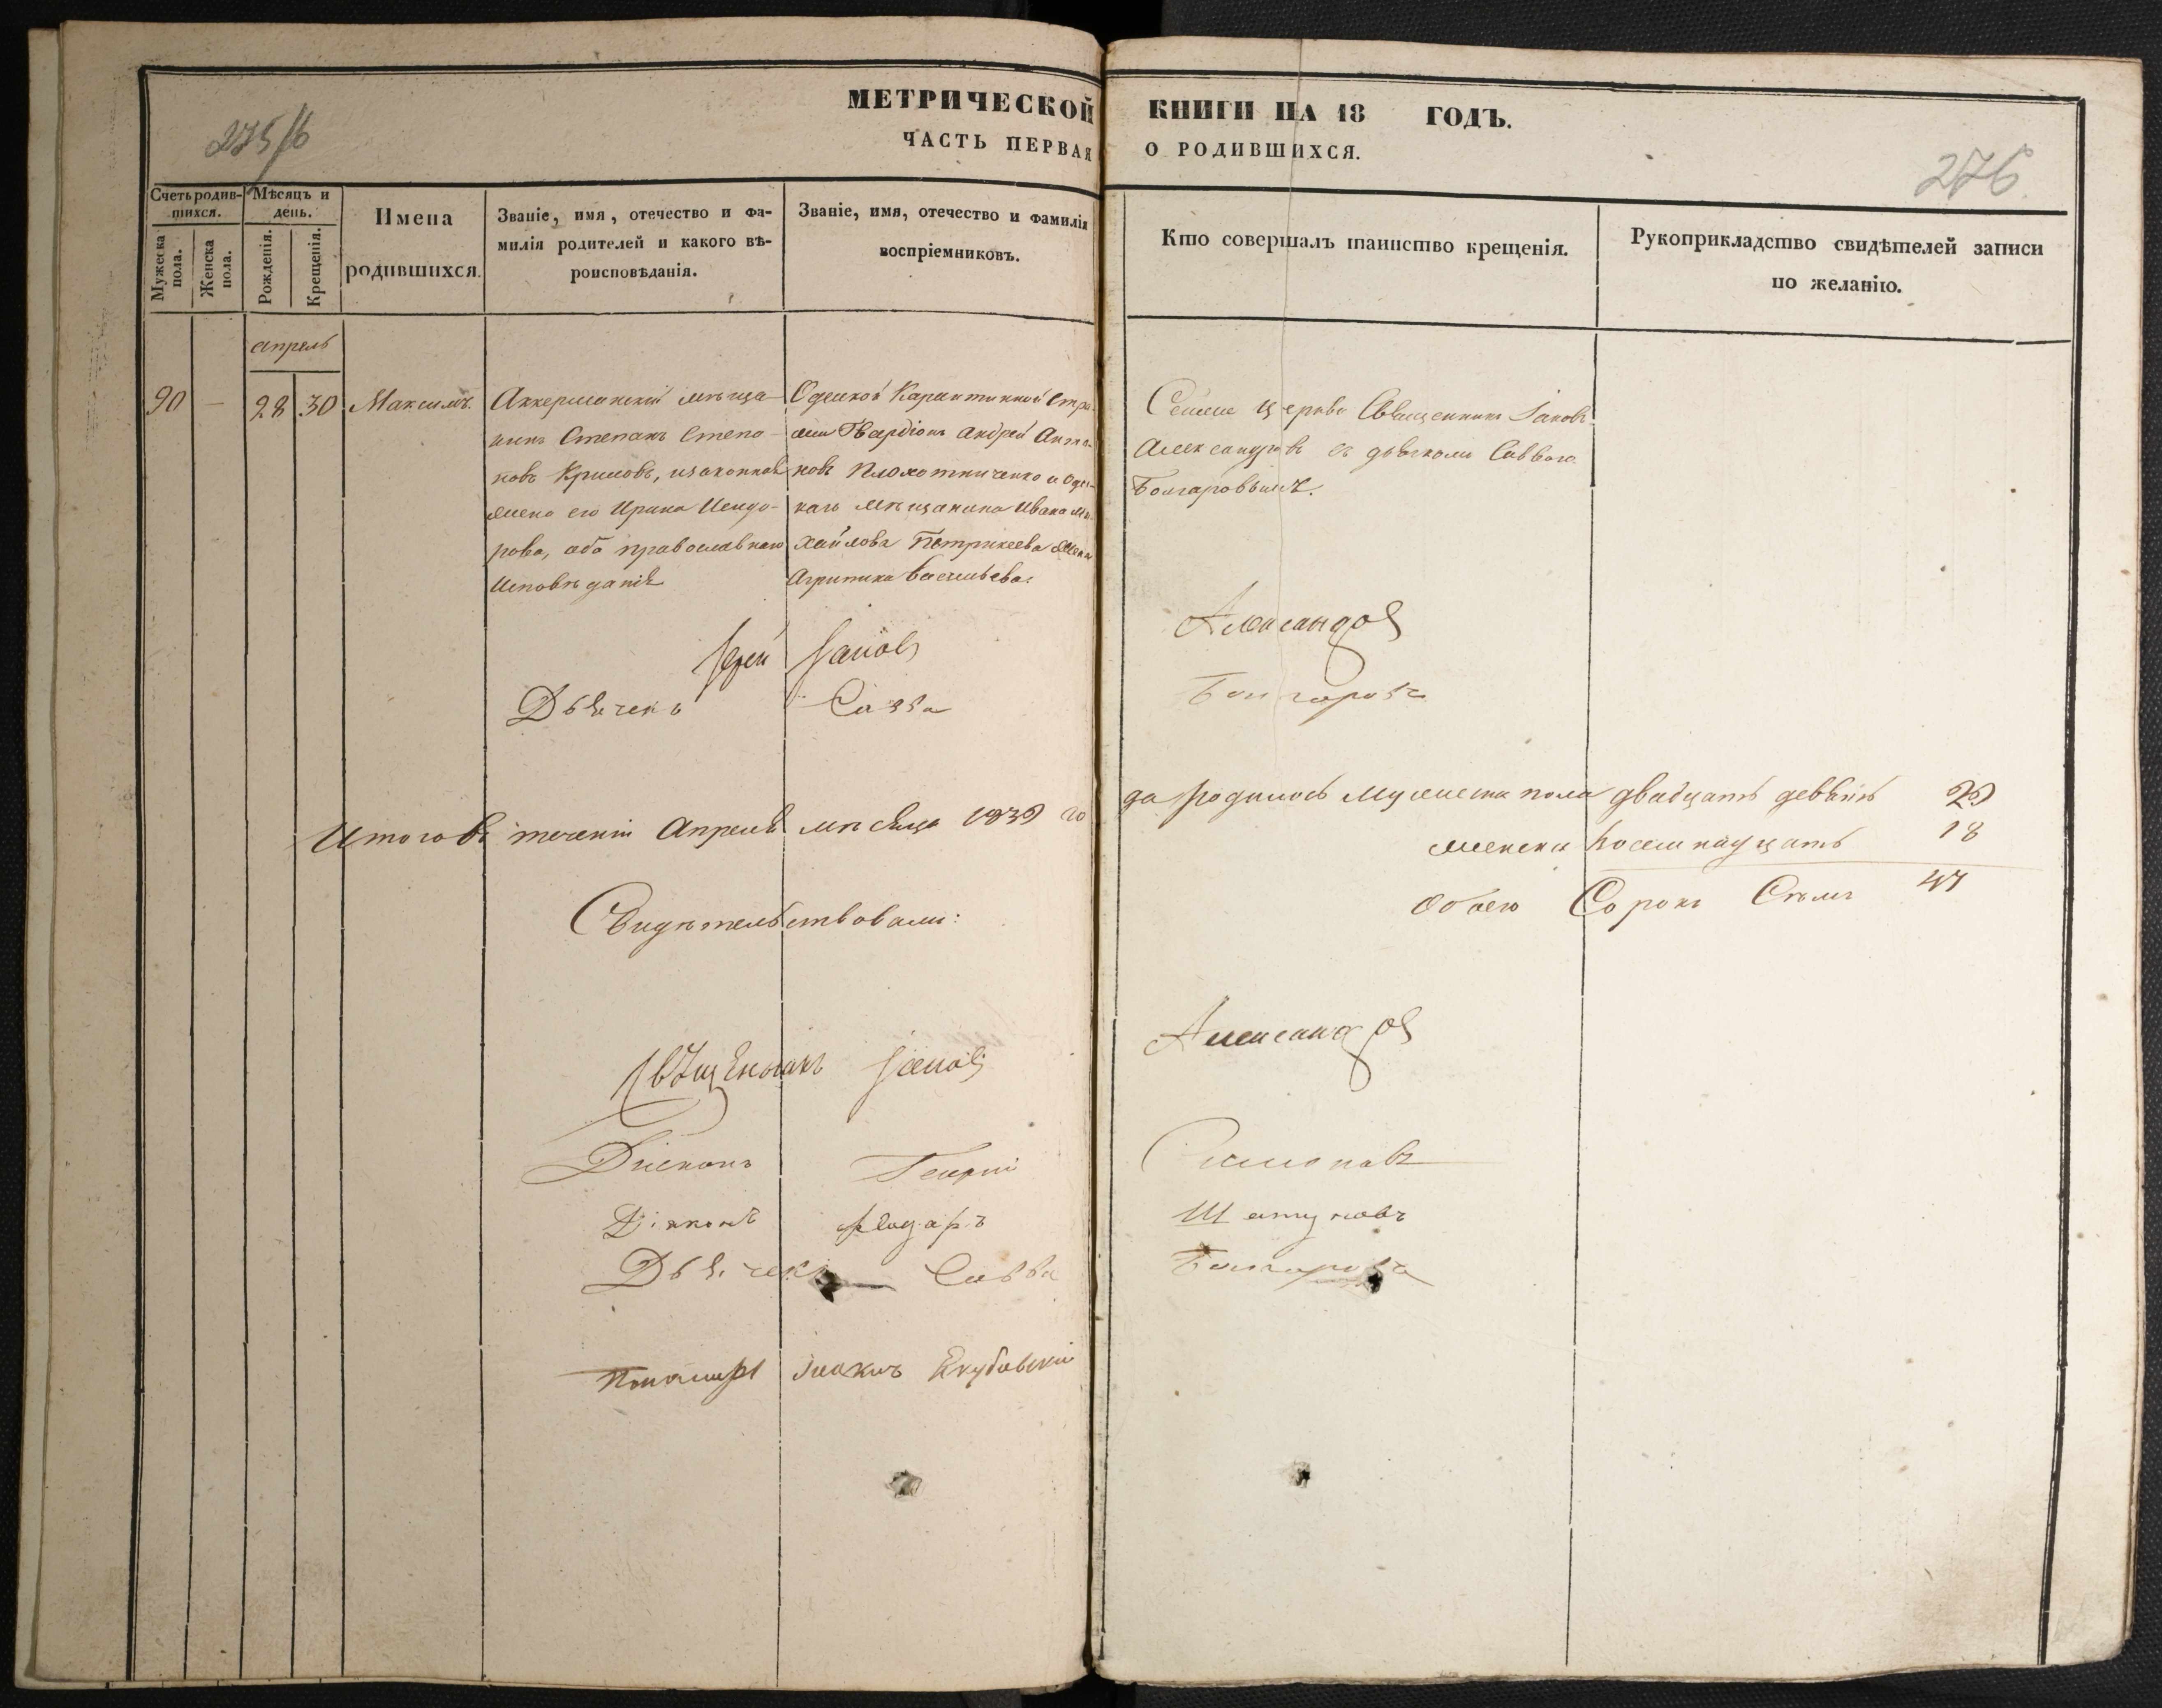 МЕТРИЧЕСКОЙ КНИГИ НА 18 ГОДЪ.
ЧАСТЬ ПЕРВАЯ О РОДИВШИХСЯ.
275/б
276
Счетъ родив-
шихся.
Мужеска
пола.
Женска
пола.
Мѣсяцъ и
день.
Рожденія.
Крещенія.
Имена
родившихся.
Званіе, имя, отечество и фа-
милія родителей и какого вѣ-
роисповѣданія.
Званіе, имя, отечество и фамилія
воспріемниковъ.
Кто совершалъ таинство крещенія.
Рукоприкладство свидѣтелей записи
по желанію.
апрель
90 — 28 30 Максимъ.
Аккерманскій мѣща-
нинъ Степанъ Степа-
новъ Кримовъ, изаконная
жена его Ирина
рова, оба православнаго
Исповѣданія
Одеской Карантинной Стра-
жи Гвардіонъ Андрей Анто-
новъ Плохотниченко и Одес-
каго мѣщанина Ивана Ми-
хайлова Петрикеева жена
Агрипина Васильева.
церкви Священникъ Іаковъ
Александровъ съ дьячкомъ Саввою
Болгаровымъ.
Іерей Іаковъ Александровъ
Дьячекъ Савва Болгаровъ
Итого въ теченіи Апреля мѣсяца 1839 го да родилось мужеска пола двадцать девять 29
женска восемнадцать 18
обоего Сорокъ Сѣмъ 47
Свидѣтельствовали:
Священникъ Іаковъ Александровъ
Діаконъ Георгій Симоновъ
Діаконъ Шатуновъ
Дьячекъ Савва Болгаровъ
Пономарь Якубовскій